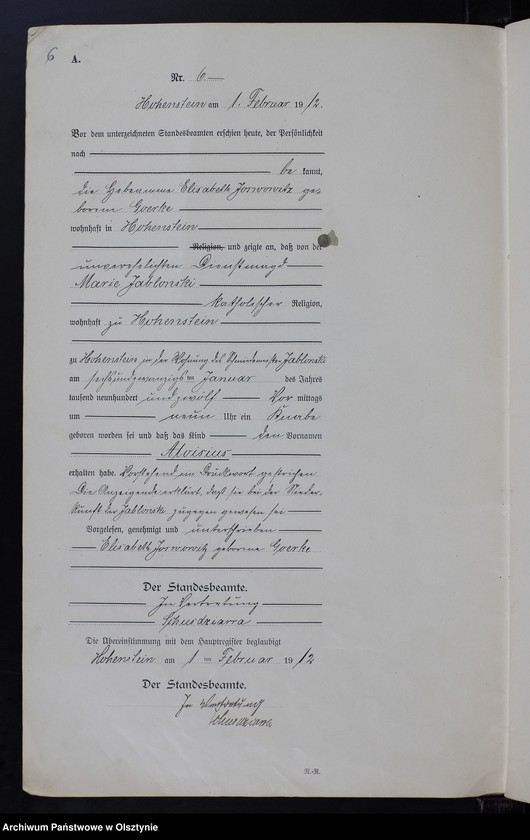 6
A.
Nr. 6
Hohenstein am 1. Februar 1912.
Vor dem unterzeichneten Standesbeamten erschien heute, der Persönlichkeit
nach
be kannt,
die Hebeamme Elisabeth ge-
borene Goerke
wohnhaft in Hohenstein
Religion, und zeigte an, daß von der
unverehelichten Dienstmagd
Marie Jablonski
katholischer Religion,
wohnhaft zu Hohenstein
zu Hohenstein in der Wohnung des Jablonski
am sechsundzwanzigsten Januar des Jahres
tausend neunhundert und zwölf Vor mittags
um neun Uhr ein Knabe
geboren worden sei und daß das Kind den Vornamen
Aloisius
erhalten habe. Vorstehend ein Druckwort gestrichen
Die Anzeigende erklärt, daß sie bei der Nieder-
kunft der Jablonski zugegen gewesen sei
Vorgelesen, genehmigt und unterschrieben
Elisabeth geborene Goerke
Der Standesbeamte.
In Vertretung
Die Übereinstimmung mit dem Hauptregister beglaubigt
Hohenstein am 1 ten Februar 1912
Der Standesbeamte.
In Vertretung
N.-R.
Archiwum Państwowe w Olsztynie